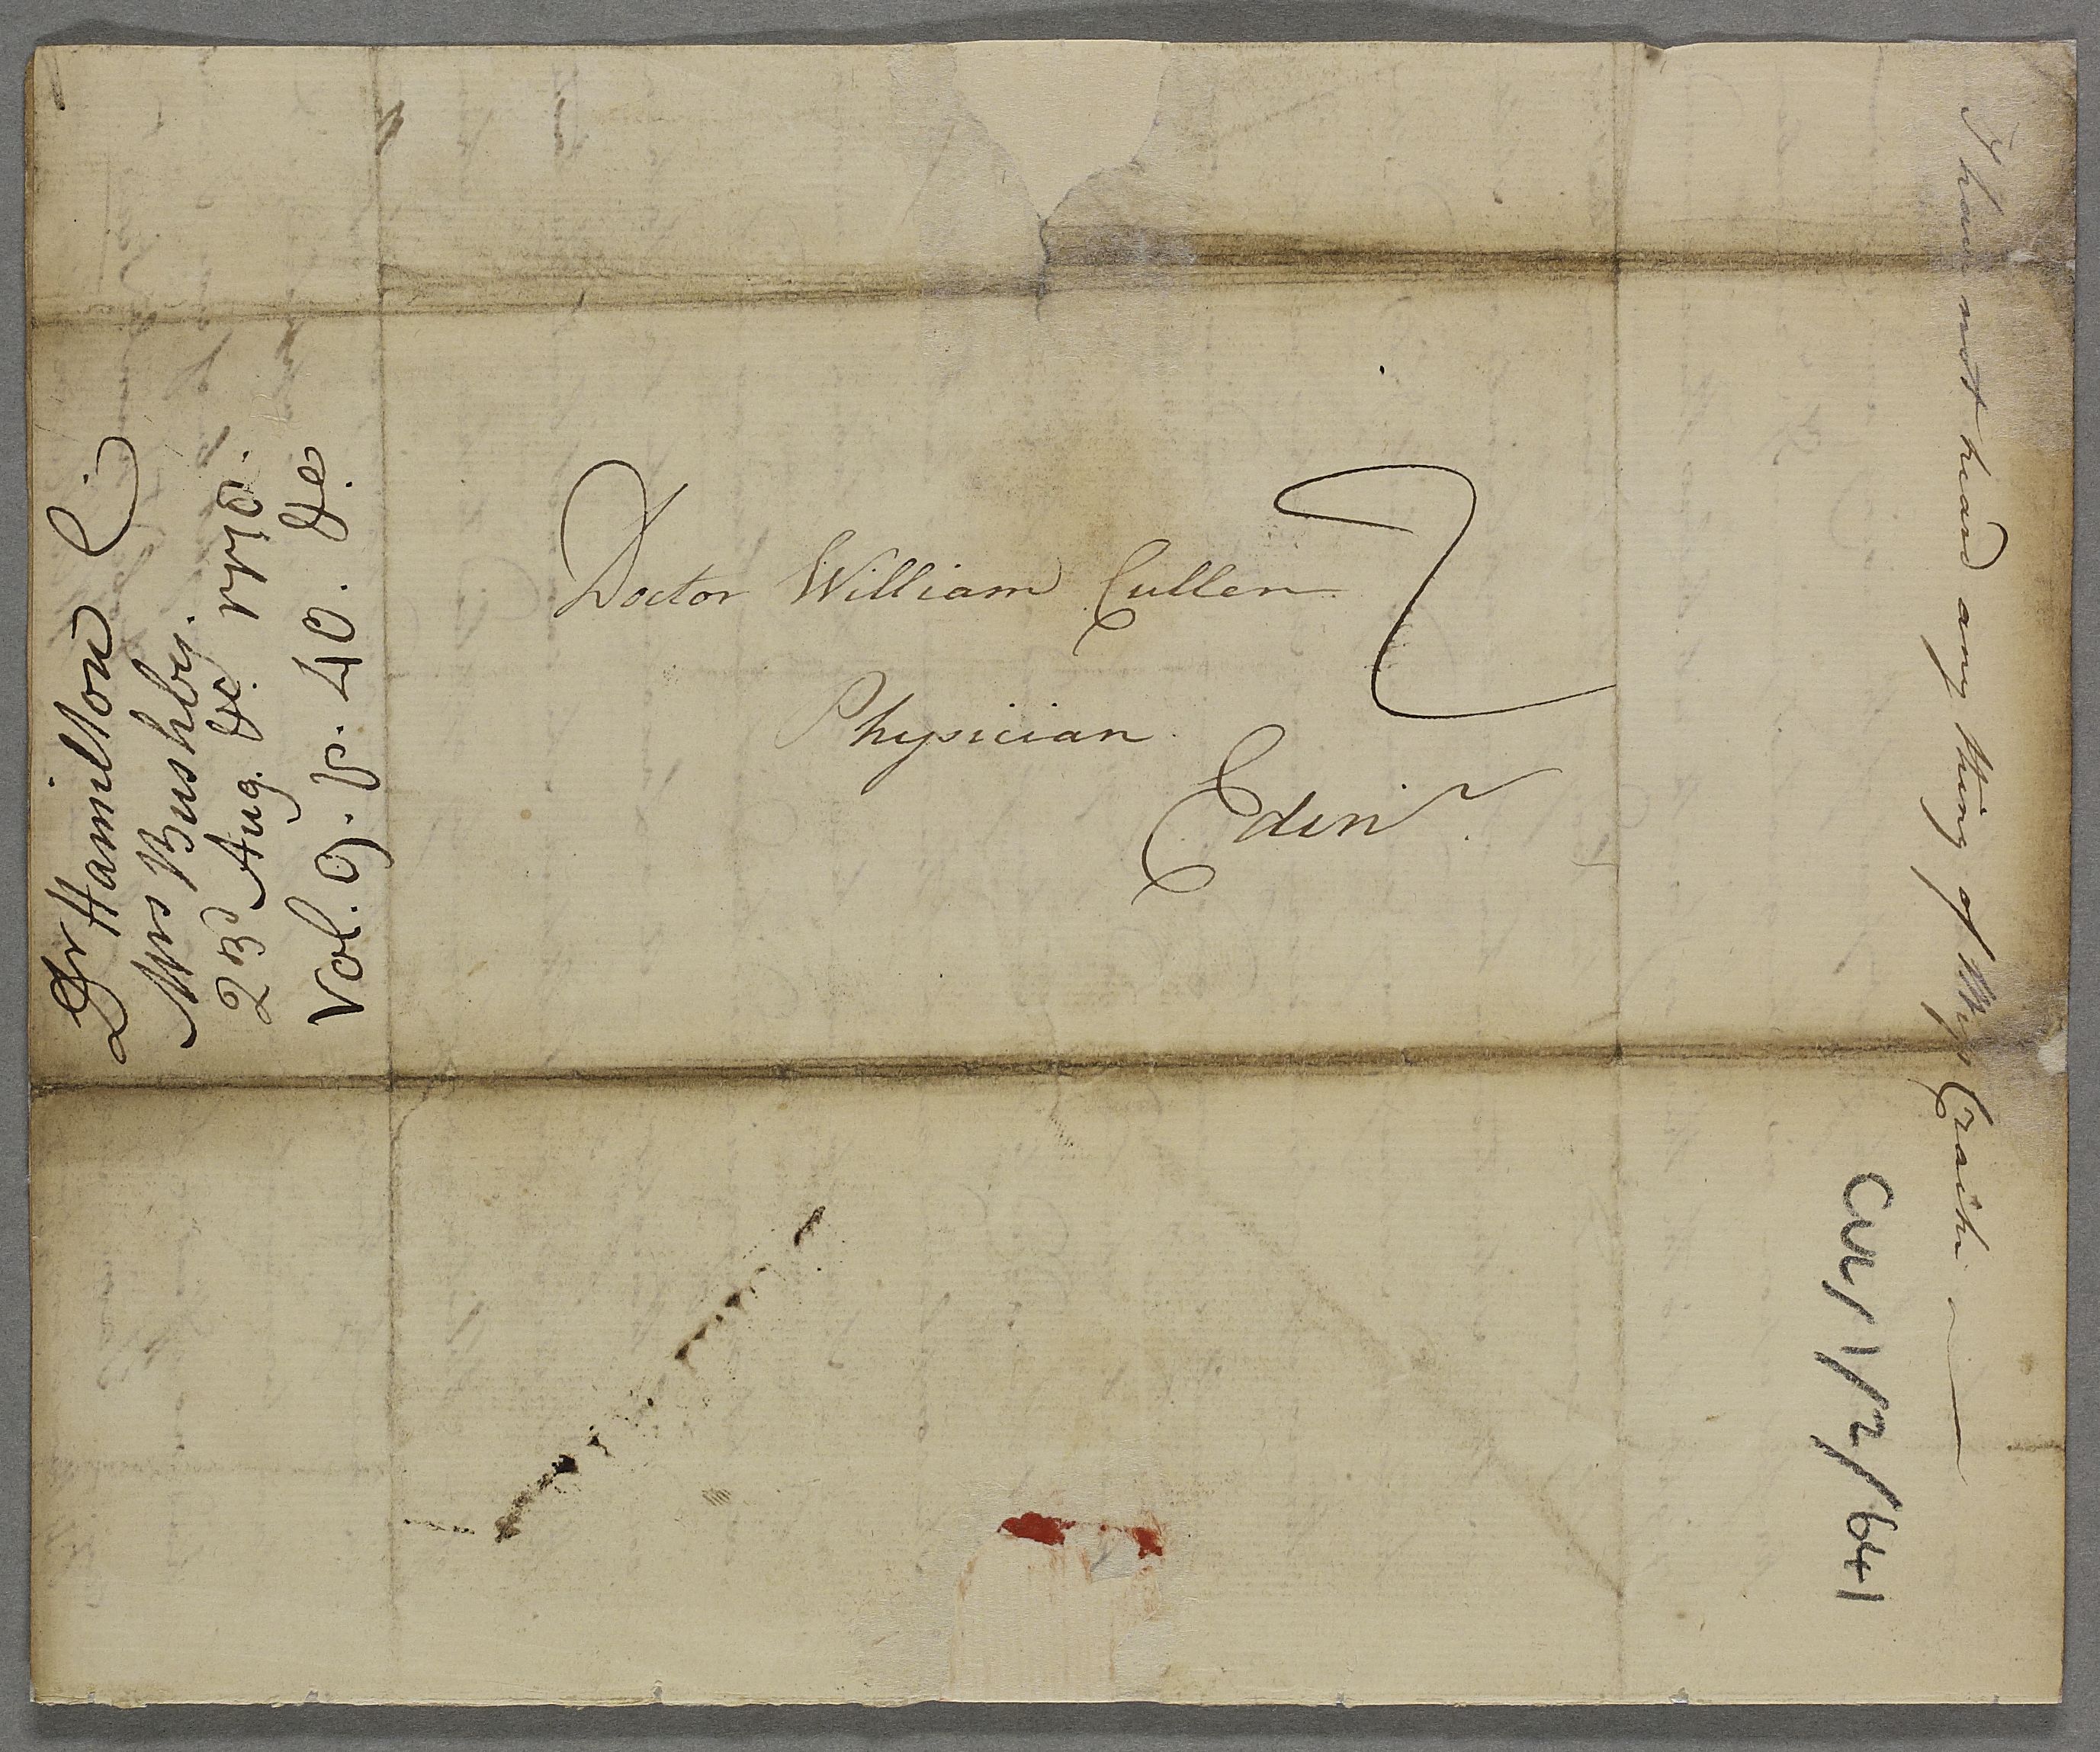 Doctor William Cullen
Physician
Edinr.
2
Dr Hamilton
Mrs Bushby.
23d Aug. &c.
Vol. 9. p. 40. &c.
I have not heard any thing of Miss Craik
CUL/1/2/641